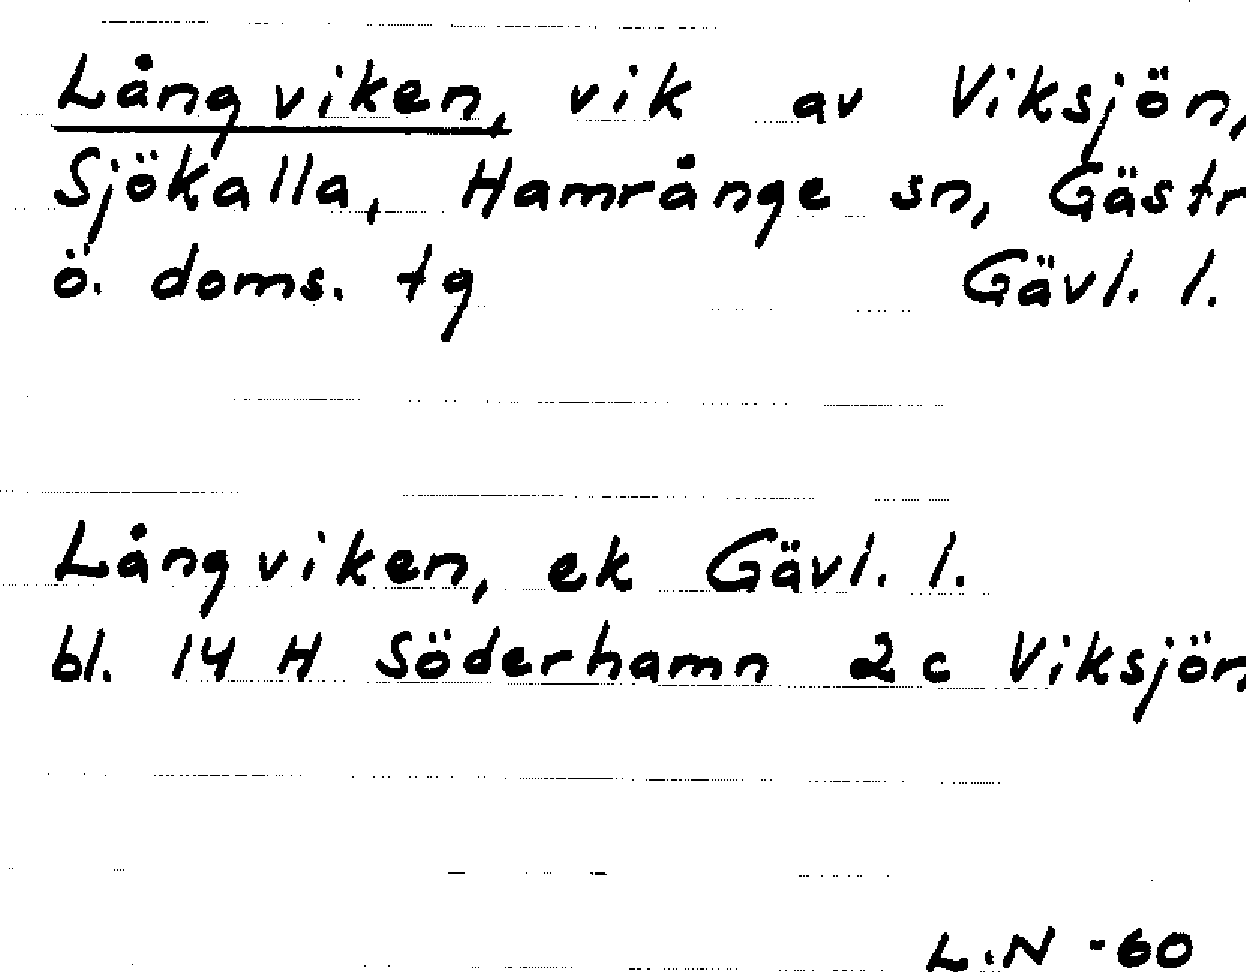 Långviken, vik av Viksjön,
Sjökalla, Hamrånge sn, Gästr
ö. doms. tg Gävl. l.
Långviken, ek Gävl. l.
bl. 14 H Söderhamn 2 c Viksjön
L.N -60